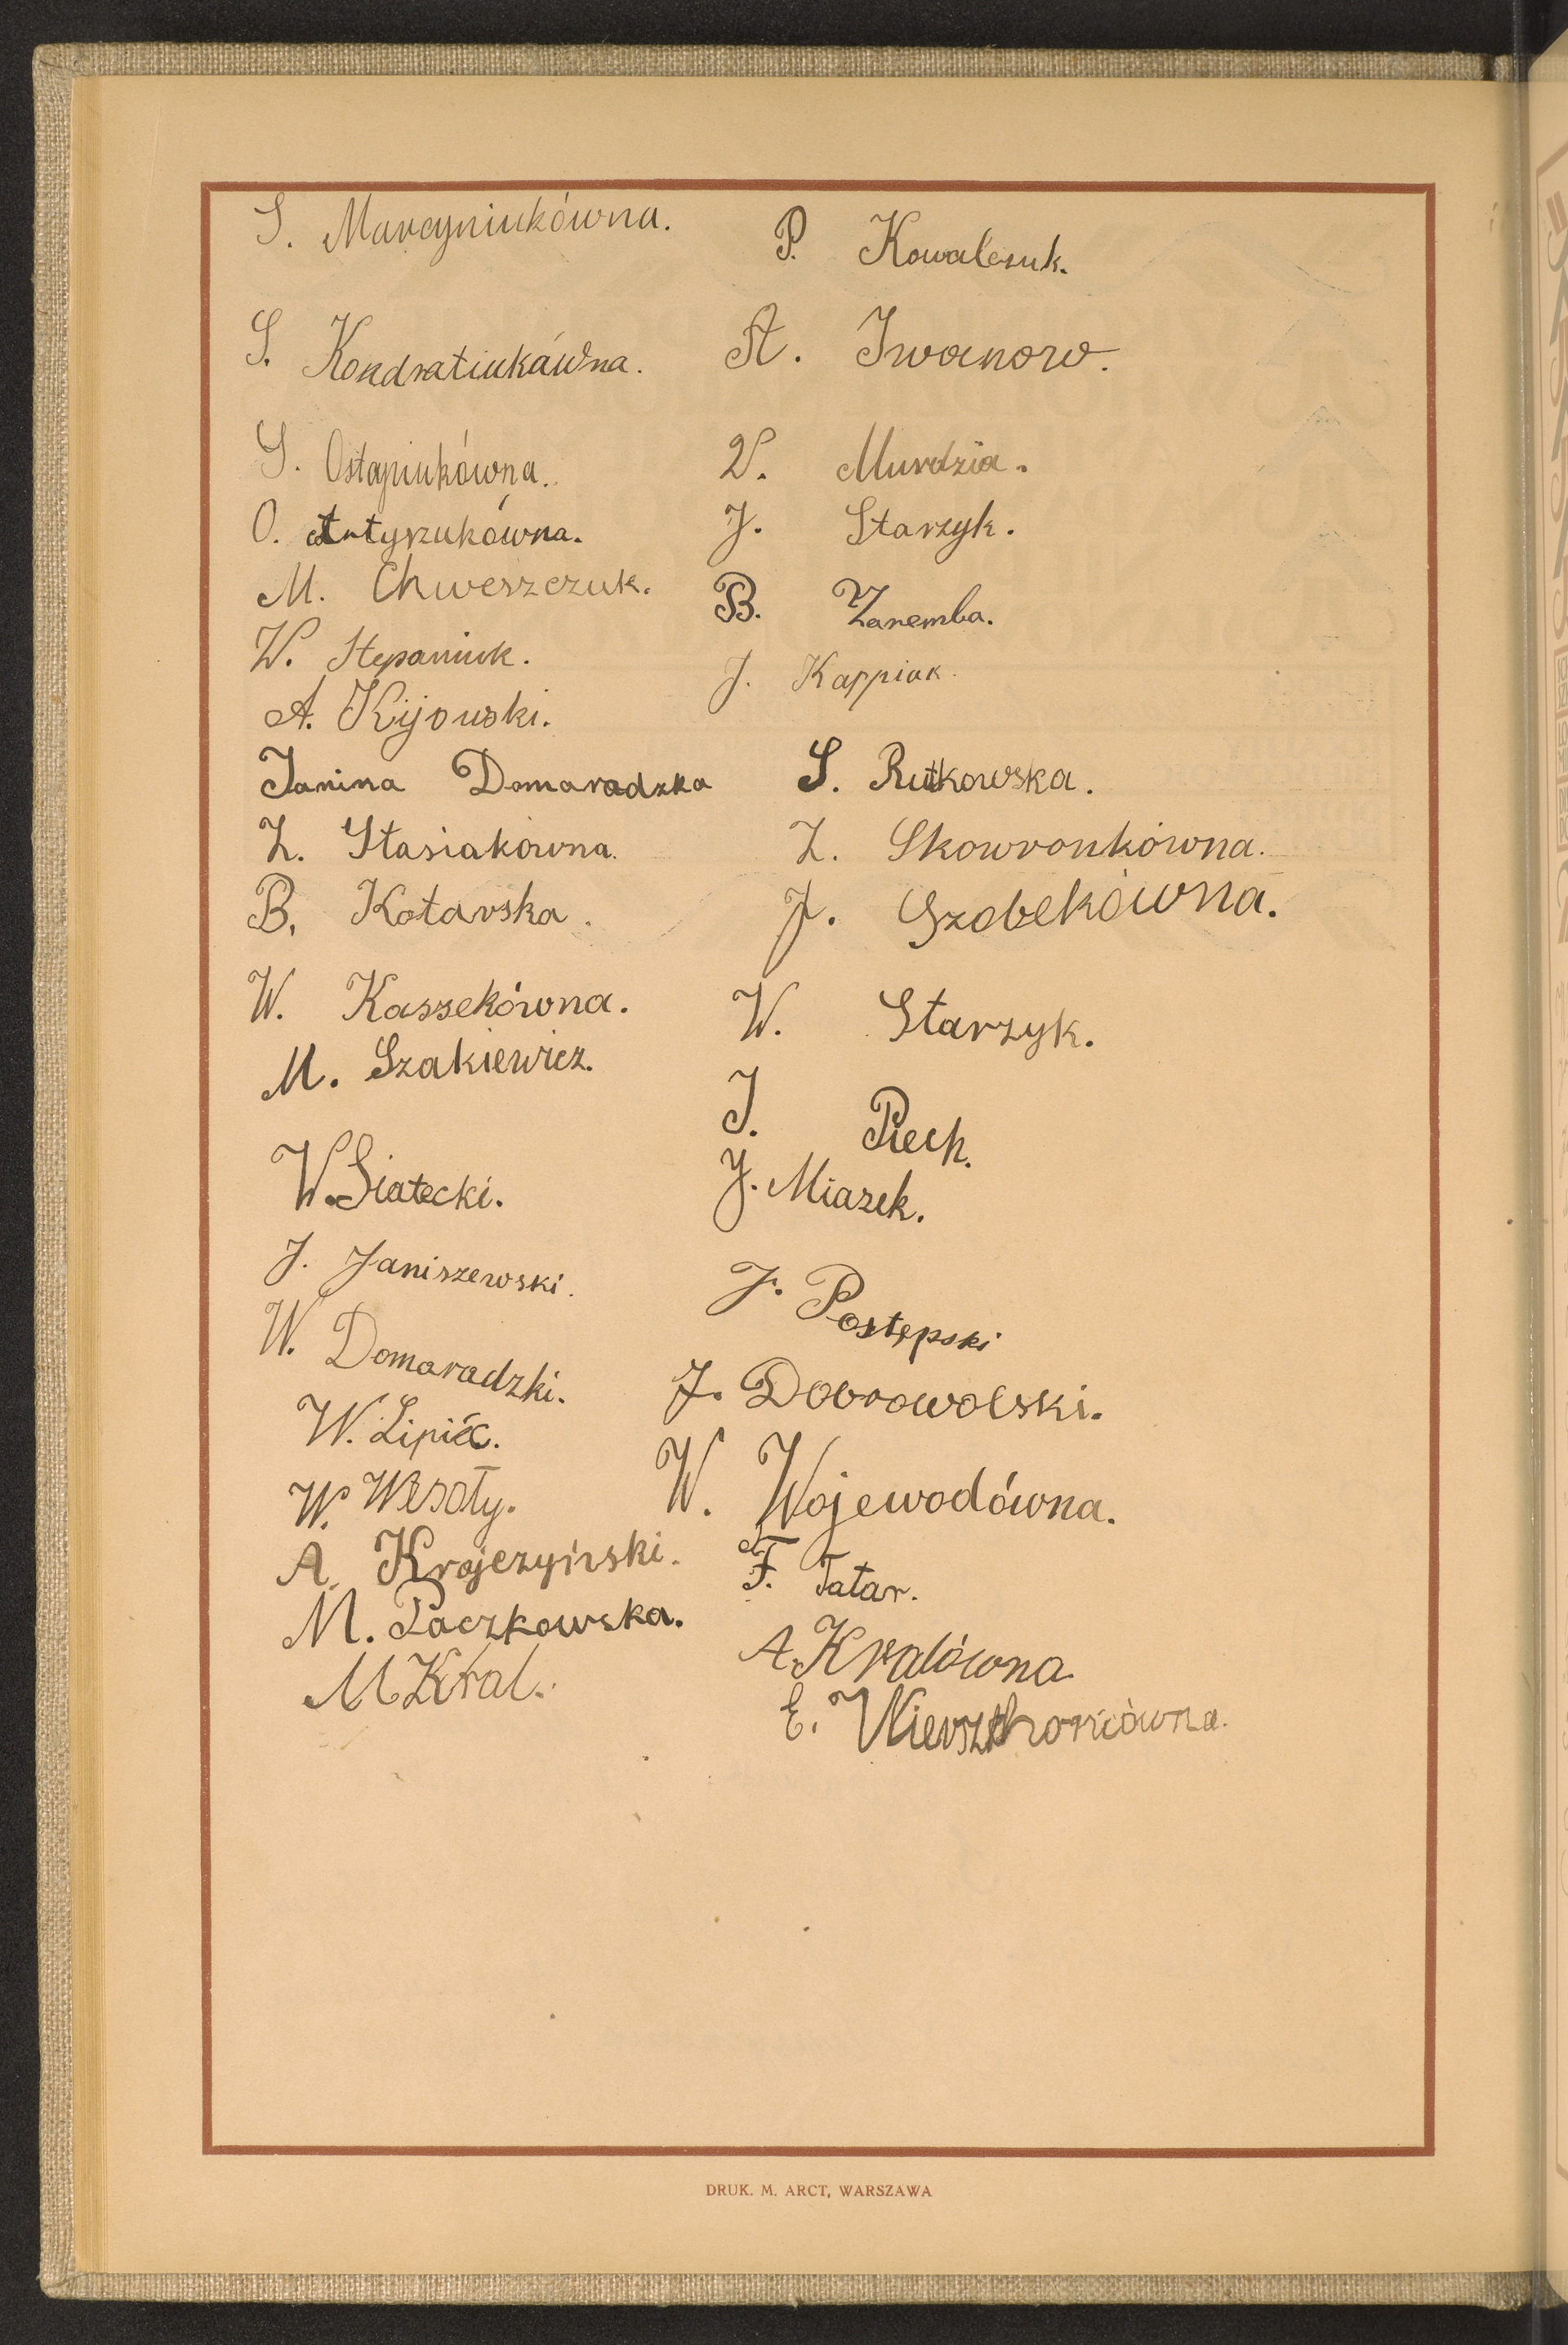 S. Marcyniukówna.
P. Kowalczuk.
S. Kondratiukówna.
St. Iwanow.
S. Ostapiukówna.
W. Murdzia.
O. Artyszukówna.
J. Starzyk.
M. Chweszczuk.
B. Zaremba.
W. Stepaniuk.
J. Kappiak.
A. Kijowski.
Janina Domaradzka
S. Rutkowska.
Z. Stasiakówna.
Z. Skowronkówna.
B. Kotarska.
J. Szobekówna.
W. Kaszekówna.
W. Starzyk.
M. Szakiewicz.
J. Piech.
W. Siatecki.
J. Miazek.
J. Janiszewski.
J. Postępski
W. Domaradzki.
J. Dobrowolski.
W. Lipiec.
W. Wojewodówna.
W. Wesoły.
F. Tatar.
A. Krajczyński.
M. Paczkowska.
A. Kralówna
M Kral.
E.
DRUK. M. ARCT, WARSZAWA